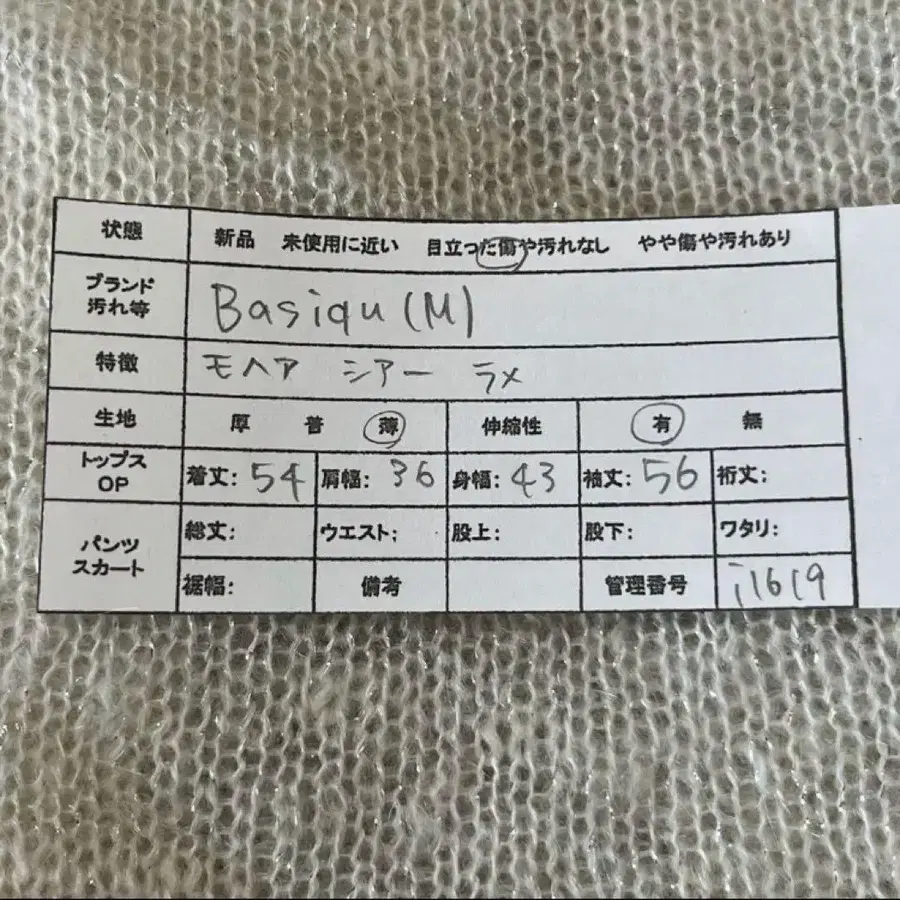 状態 新品 未使用に近い 目立った傷や汚れなし やや傷や汚れあり
ブランド
汚れ等
Basiqu (M)
特徴 モヘア シアー ラメ
生地 厚 普 薄 伸縮性 有 無
トップス
OP
着丈: 54 肩幅: 36 身幅: 43 袖丈: 56 裄丈:
パンツ
スカート
総丈: ウエスト: 股上: 股下: ワタリ:
裾幅: 備考 管理番号 i1619